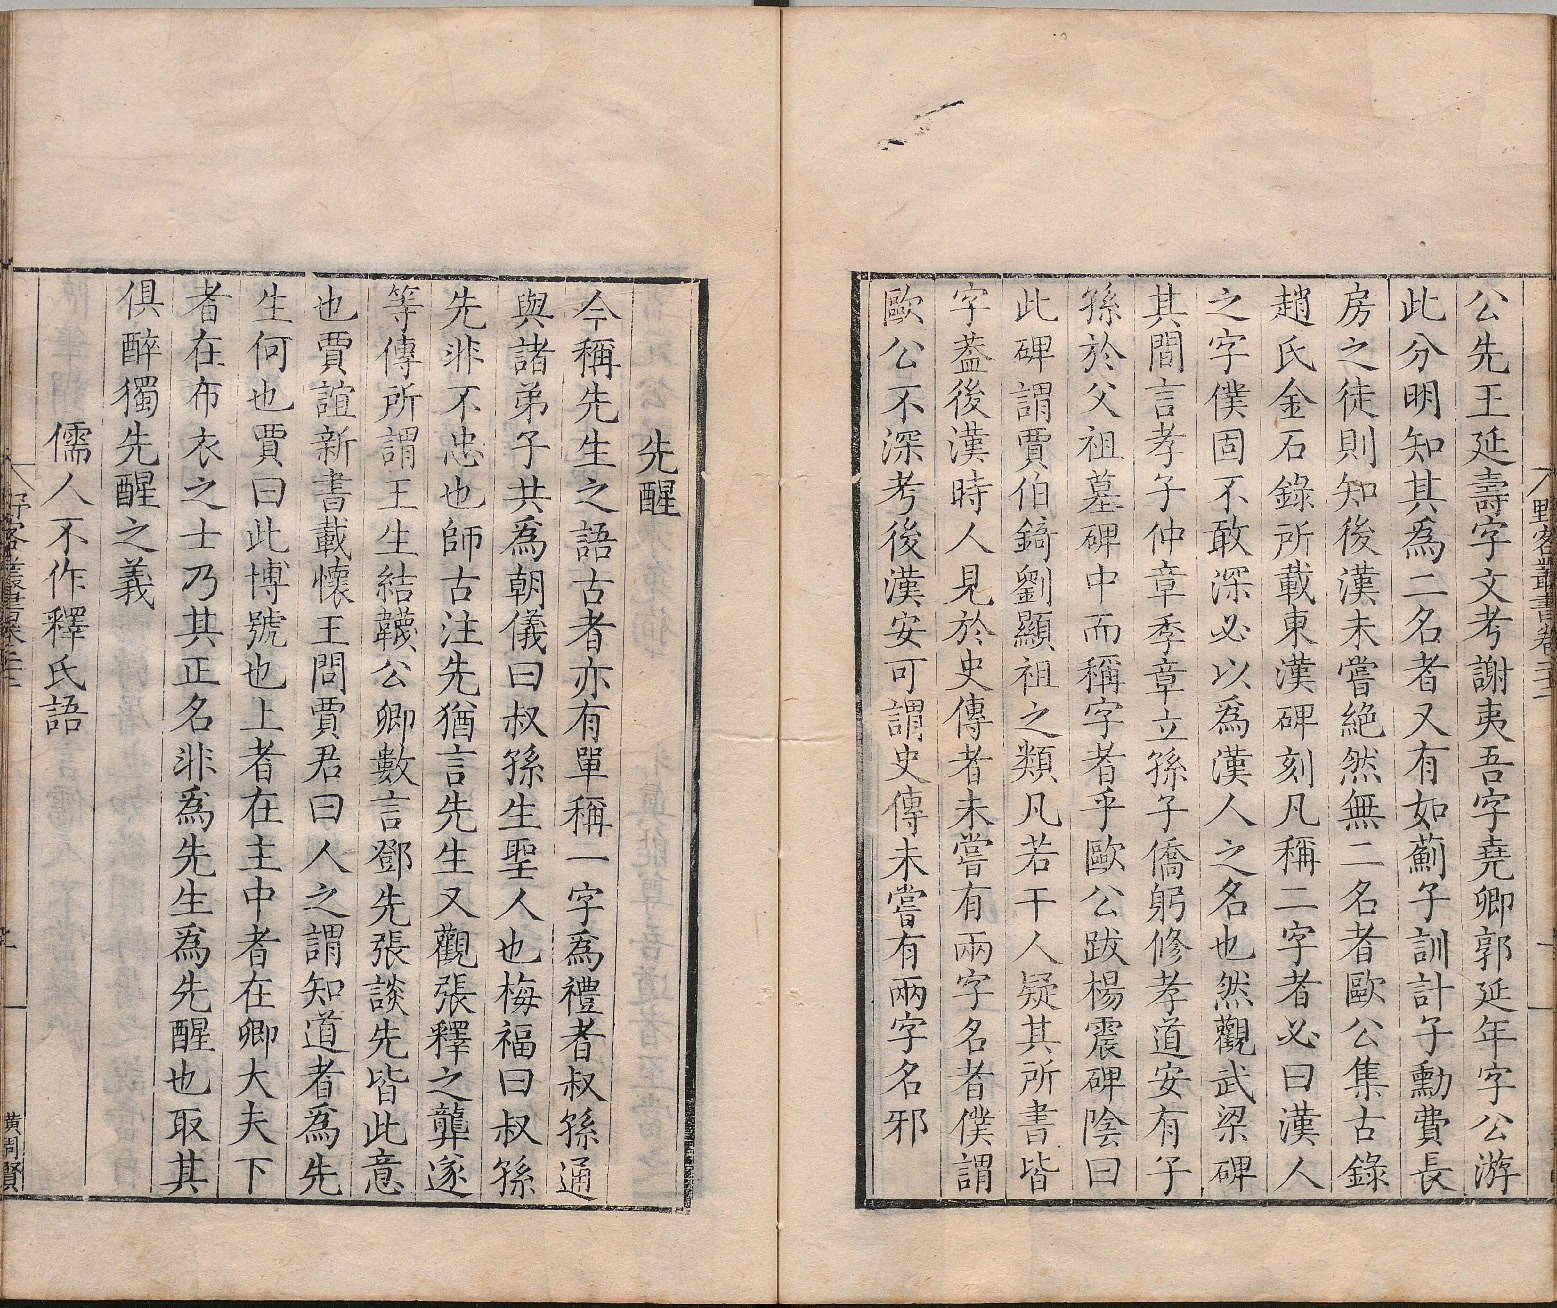 野客叢書卷二十二
公先王延壽字文考謝夷吾字堯卿郭延年字公游
此分明知其為二名者又有如薊子訓計子勳費長
房之徒則知後漢未嘗絶然無二名者歐公集古錄
趙氏金石錄所載東漢碑刻凡稱二字者必曰漢人
之字僕固不敢深必以為漢人之名也然觀武梁碑
其間言孝子仲章季章立孫子僑躬修孝道安有子
孫於父祖墓碑中而稱字者乎歐公跋楊震碑陰曰
此碑謂賈伯錡劉顯祖之類凡若干人疑其所書皆
字葢後漢時人見於史傳者未嘗有兩字名者僕謂
歐公不深考後漢安可謂史傳未嘗有兩字名邪
先醒
今稱先生之語古者亦有單稱一字為禮者叔孫通
與諸弟子共為朝儀曰叔孫生聖人也梅福曰叔孫
先非不忠也師古注先猶言先生又觀張釋之龔遂
等傳所謂王生結韈公卿數言鄧先張談先皆此意
也賈誼新書載懷王問賈君曰人之謂知道者為先
生何也賈曰此博號也上者在主中者在卿大夫下
者在布衣之士乃其正名非為先生為先醒也取其
俱醉獨先醒之義
儒人不作釋氏語
黄周賢